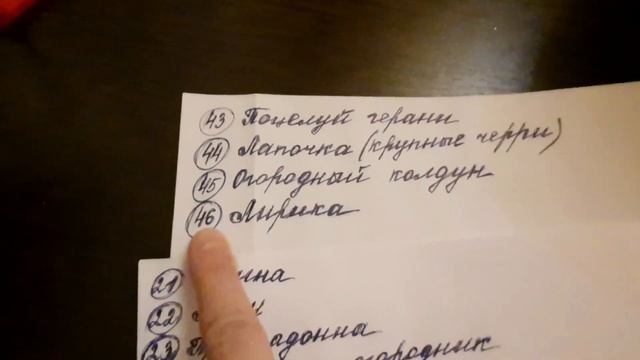 43 Поцелуй герани
44 Лапочка (крупные черри)
45 Огородный колдун
46 Лирика
21
22
23
огородник